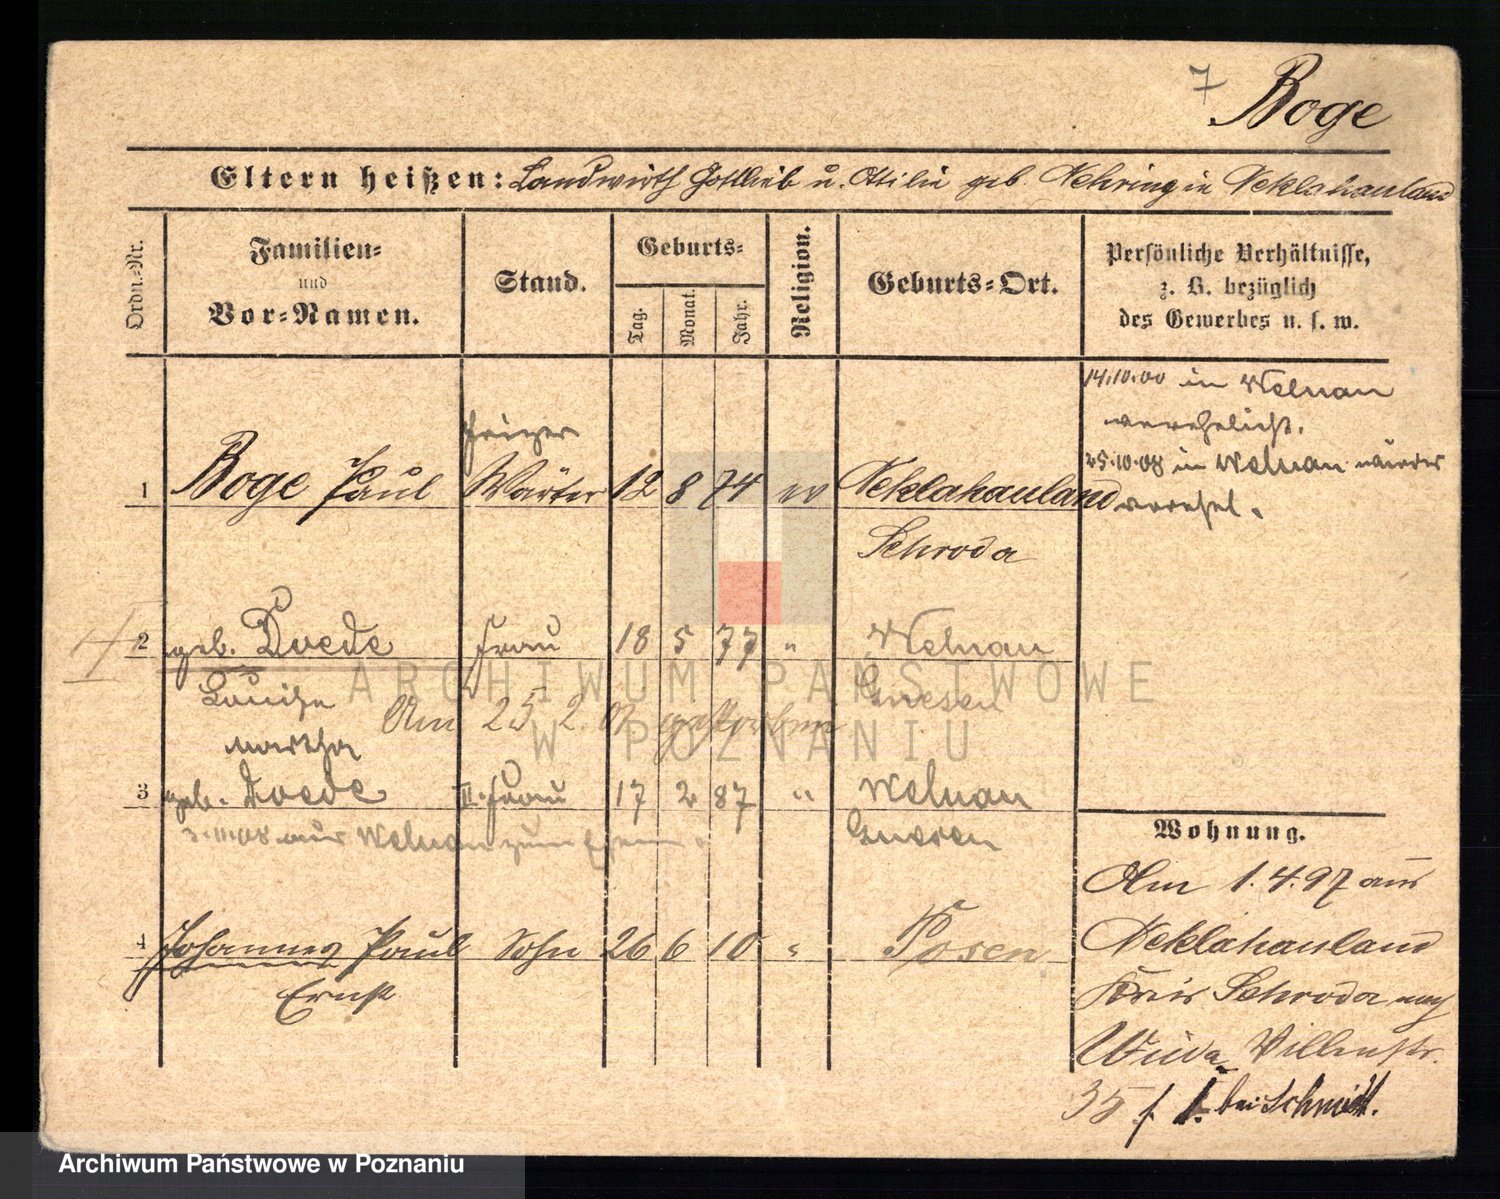 7 Boge
Eltern heißen: Landwirth Gottlieb u. Otilie geb. Nehring in Neklahauland
Ordn.-Nr.
Familien-
und
Vor-Namen.
Stand.
Geburts-
Tag.
Monat.
Jahr.
Religion.
Geburts-Ort.
Persönliche Verhältnisse,
z. B. bezüglich
des Gewerbes u. s. w.
14.10.00 in Welnau
verehelicht.
25.10.08 in Welnau wieder
verehel.
Heizer
1 Boge Paul Wärter 12 8 74 ev Neklahauland
Schroda
2 geb. Doede Frau 18 5 77 " Welnau
Gnesen
Louise
Am 25 2. gestorben
Martha
3 geb. Doede II. Frau 17 2 87 " Welnau
Gnesen
aus Welnau
4 Johannes Paul Sohn 26 6 10 " Posen
Ernst
Wohnung.
Am 1.4.97 aus
Neklahauland
Kreis Schroda nach
Wilda Villenstr.
35 I. bei Schmidt.
ARCHIWUM PAŃSTWOWE
W POZNANIU
Archiwum Państwowe w Poznaniu